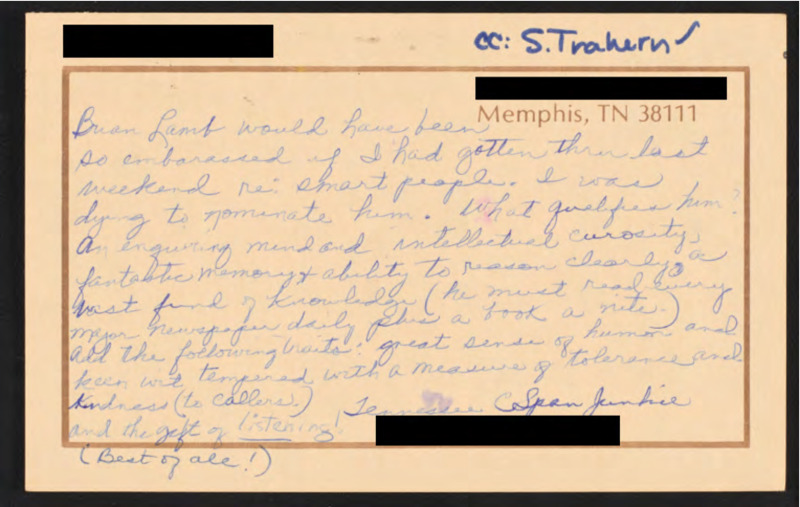 cc: S. Trahern ✓
Memphis, TN 38111
Brian Lamb would have been
so embarassed if I had gotten thru last
weekend re: smart people. I was
dying to nominate him. What qualfies him?
An enquiring mind and intellectual curosity,
fantastic memory & ability to reason clearly, a
vast fund of knowledge (he must read every
major newspaper daily plus a book a nite.)
Add the following traits: great sense of humor and
keen wit tempered with a measure of tolerance and
kindness (to callers.) Tennessee CSpan Junkie
and the gift of listening!
(Best of all!)